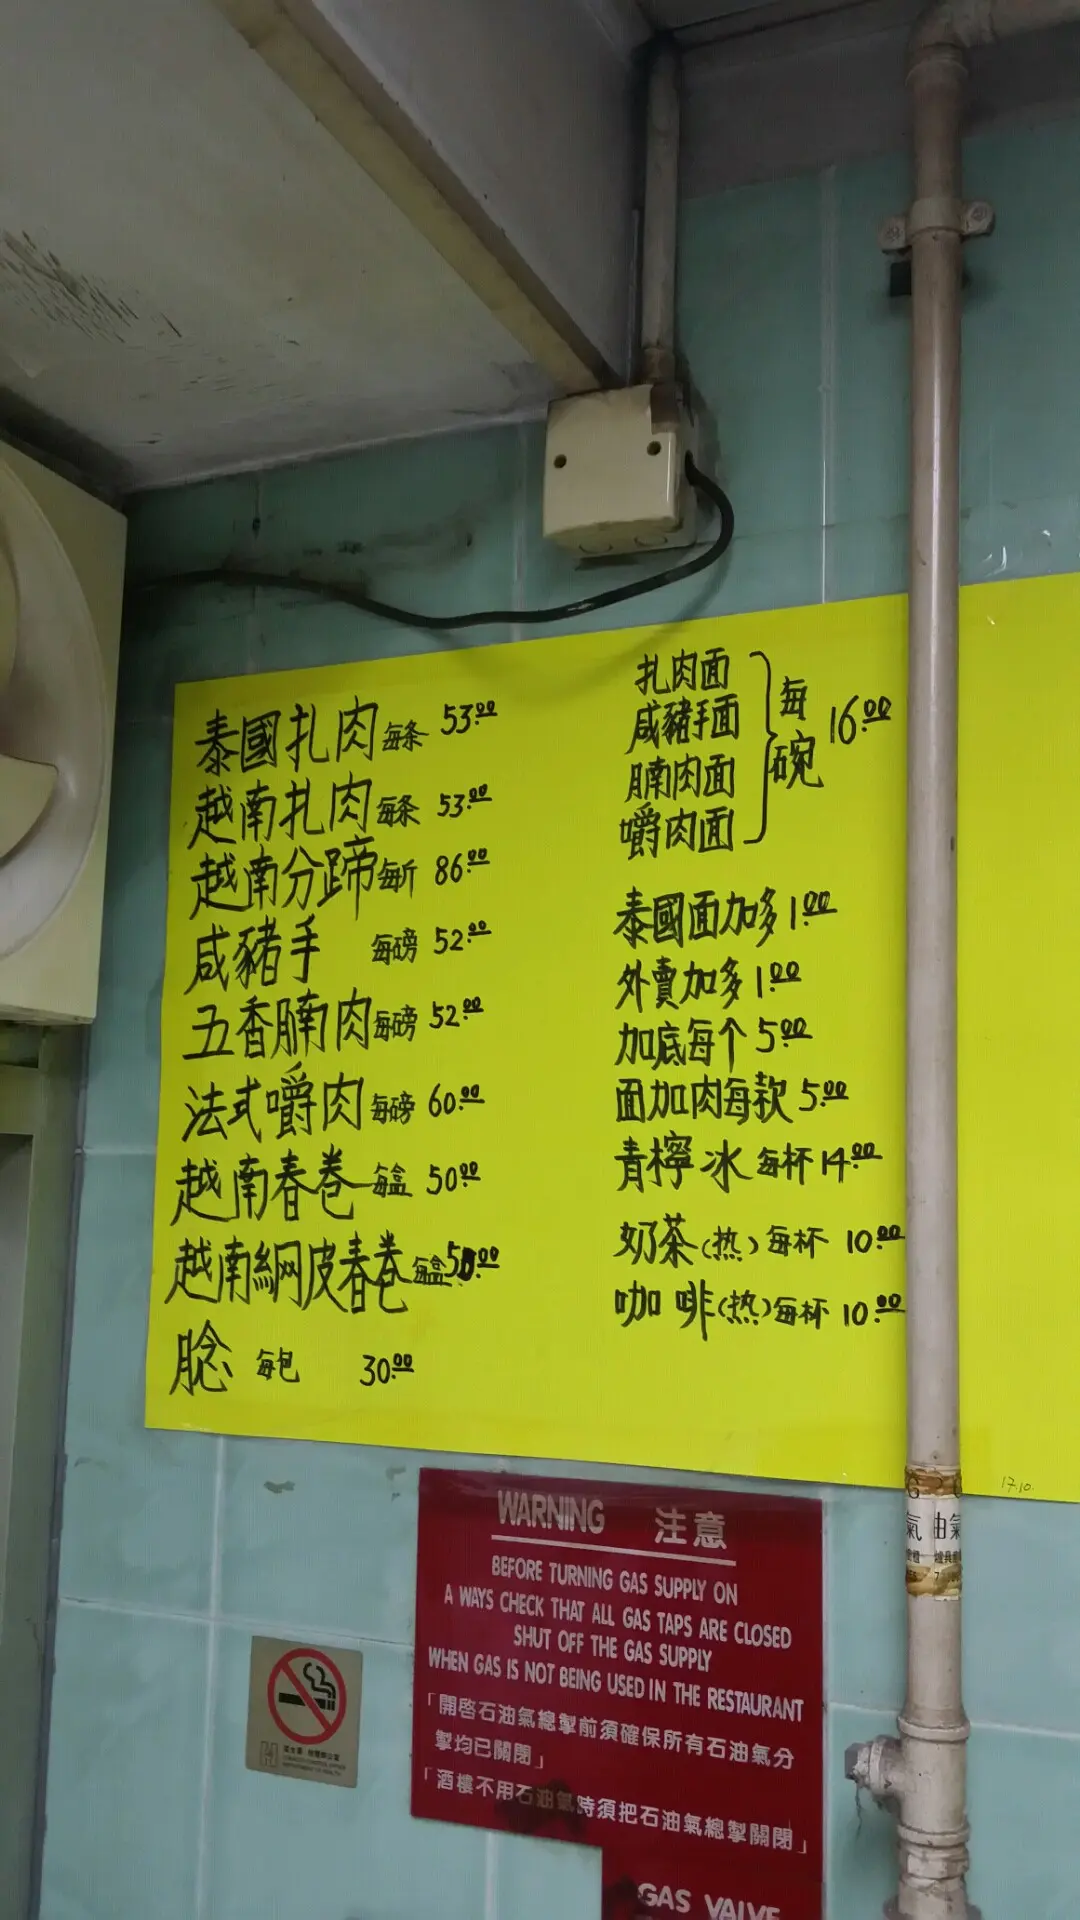 泰國扎肉每条 53.00
越南扎肉每条 53.00
越南分蹄每斤 86.00
咸豬手 每磅 52.00
五香腩肉每磅 52.00
法式嚼肉每磅 60.00
越南春卷每盒 50.00
越南網皮春卷每盒
腍 每包 30.00
扎肉面
咸豬手面
腩肉面
嚼肉面
每碗 16.00
泰國面加多 1.00
外賣加多 1.00
加底每个 5.00
面加肉每款 5.00
青檸冰每杯 14.00
奶茶(热)每杯 10.00
咖啡(热)每杯 10.00
17.10.
氣 油氣
WARNING 注意
BEFORE TURNING GAS SUPPLY ON
A WAYS CHECK THAT ALL GAS TAPS ARE CLOSED
SHUT OFF THE GAS SUPPLY
WHEN GAS IS NOT BEING USED IN THE RESTAURANT
「開啓石油氣總掣前須確保所有石油氣分
掣均已關閉」
「酒樓不用石油氣時須把石油氣總掣關閉」
GAS VALVE